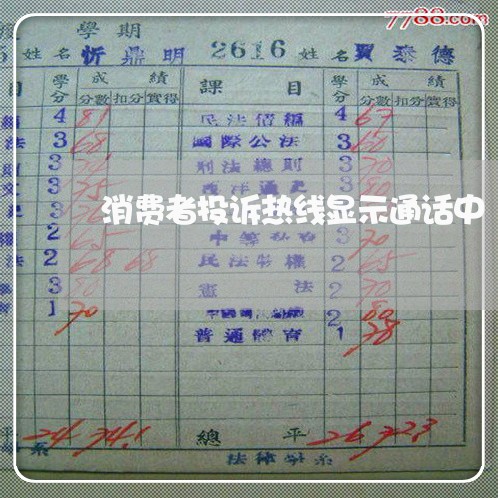 7788.com
學期
姓名 忻鼎明 2616 姓名 賈泰德
目 學分 成績 課目 學分 成績
分數 扣分 實得 分數 扣分 實得
4 81 民法債編 4 67
法 3 68 國際公法 3 60
3 刑法總則 3 70
文 3 75 西洋通史 3 80
消费者投诉热线显示通话中
2 65 3 70
法 2 68 68 民法物權 2 65
3 80 憲法 2 70
1 70 2 80
普通體育 1 78
平 24 74.1 總平 26 72.3
系 法律學系